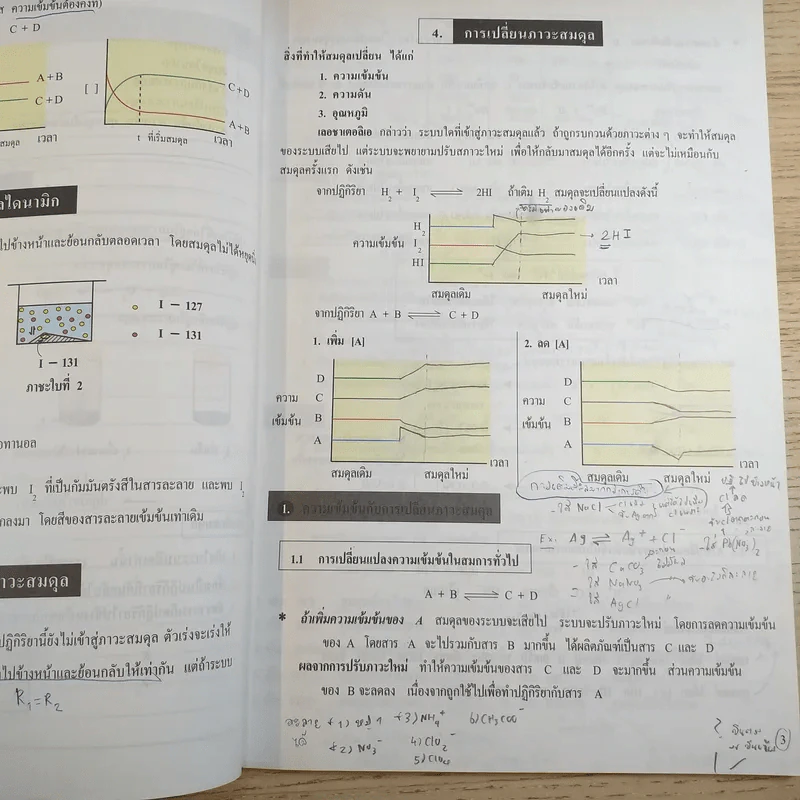 ความเข้มข้นต้องคงที่)
C + D
A + B
C + D
[ ]
C+D
A+B
เวลา
t ที่เริ่มสมดุล
เวลา
ไดนามิก
ไปข้างหน้าและย้อนกลับตลอดเวลา โดยสมดุลไม่ได้หยุดนิ่ง
I − 127
I − 131
I − 131
ภาชะใบที่ 2
พบ I2 ที่เป็นกัมมันตรังสีในสารละลาย และพบ I2
โดยสีของสารละลายเข้มข้นเท่าเดิม
ภาวะสมดุล
ปฏิกิริยานี้ยังไม่เข้าสู่ภาวะสมดุล ตัวเร่งจะเร่งให้
ไปข้างหน้าและย้อนกลับให้เท่ากัน แต่ถ้าระบบ
R1 = R2
4. การเปลี่ยนภาวะสมดุล
สิ่งที่ทำให้สมดุลเปลี่ยน ได้แก่
1. ความเข้มข้น
2. ความดัน
3. อุณหภูมิ
เลอชาเตอลิเอ กล่าวว่า ระบบใดที่เข้าสู่ภาวะสมดุลแล้ว ถ้าถูกรบกวนด้วยภาวะต่าง ๆ จะทำให้สมดุล
ของระบบเสียไป แต่ระบบจะพยายามปรับสภาวะใหม่ เพื่อให้กลับมาสมดุลได้อีกครั้ง แต่จะไม่เหมือนกับ
สมดุลครั้งแรก ดังเช่น
จากปฏิกิริยา H2 + I2 ⇌ 2HI ถ้าเติม H2 สมดุลจะเปลี่ยนแปลงดังนี้
H2
ความเข้มข้น I2
→ 2HI
HI
เวลา
สมดุลเดิม สมดุลใหม่
จากปฏิกิริยา A + B ⇌ C + D
1. เพิ่ม [A]
2. ลด [A]
D
ความ C
เข้มข้น B
A
เวลา
สมดุลเดิม สมดุลใหม่
D
ความ C
เข้มข้น B
A
เวลา
สมดุลเดิม สมดุลใหม่
- ใส่ NaCl
1. ความเข้มข้นกับการเปลี่ยนภาวะสมดุล
Ex: Ag ⇌ Ag+ + Cl−
- ใส่ Pb(NO3)2
- ใส่ CaCO3
ใส่ NaNO3
ใส่ AgCl
1.1 การเปลี่ยนแปลงความเข้มข้นในสมการทั่วไป
A + B ⇌ C + D
* ถ้าเพิ่มความเข้มข้นของ A สมดุลของระบบจะเสียไป ระบบจะปรับภาวะใหม่ โดยการลดความเข้มข้น
ของ A โดยสาร A จะไปรวมกับสาร B มากขึ้น ได้ผลิตภัณฑ์เป็นสาร C และ D
ผลจากการปรับภาวะใหม่ ทำให้ความเข้มข้นของสาร C และ D จะมากขึ้น ส่วนความเข้มข้น
ของ B จะลดลง เนื่องจากถูกใช้ไปเพื่อทำปฏิกิริยากับสาร A
ละลาย 1) หมู่ 1 3) NH4+ 6) CH3COO−
ได้ 2) NO3− 4) ClO2−
3